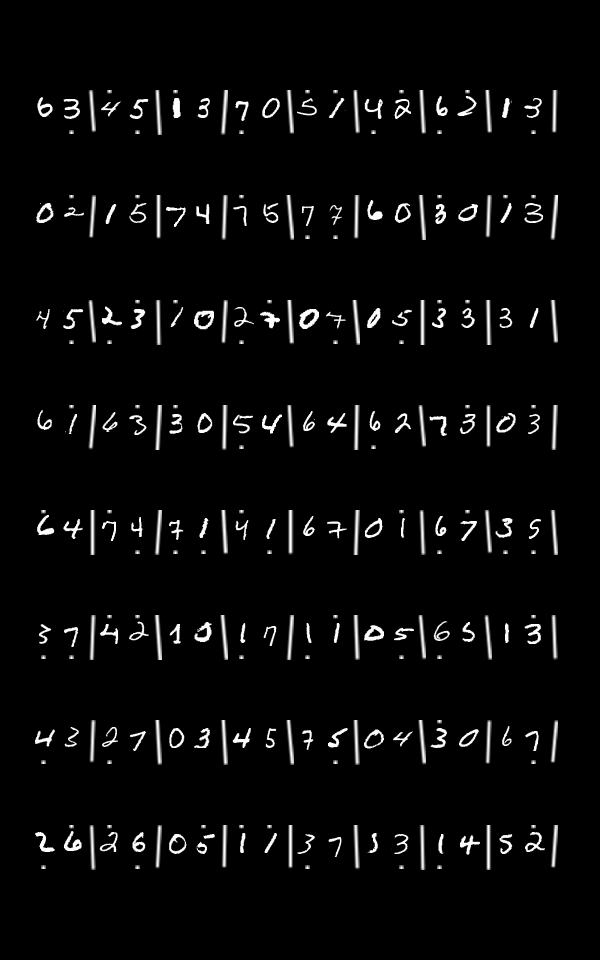 6 3 | 4 5 | 1 3 | 7 0 | 5 1 | 4 2 | 6 2 | 1 3 |
0 2 | 1 5 | 7 4 | 7 5 | 7 7 | 6 0 | 3 0 | 1 3 |
4 5 | 2 3 | 1 0 | 2 7 | 0 7 | 0 5 | 3 3 | 3 1 |
6 1 | 6 3 | 3 0 | 5 4 | 6 4 | 6 2 | 7 3 | 0 3 |
6 4 | 7 4 | 7 1 | 4 1 | 6 7 | 0 1 | 6 7 | 3 5 |
3 7 | 4 2 | 1 0 | 1 7 | 1 1 | 0 5 | 6 5 | 1 3 |
4 3 | 2 7 | 0 3 | 4 5 | 7 5 | 0 4 | 3 0 | 6 7 |
2 6 | 2 6 | 0 5 | 1 1 | 3 7 | 5 3 | 1 4 | 5 2 |